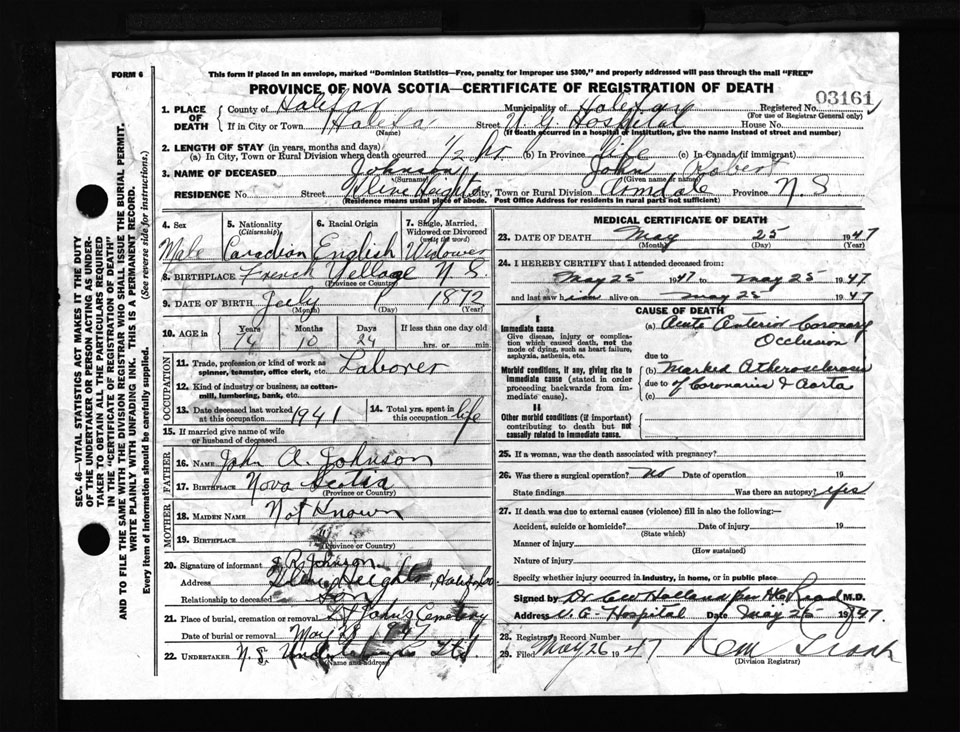 FORM 6
This form if placed in an envelope, marked "Dominion Statistics—Free, penalty for improper use $300," and properly addressed will pass through the mail "FREE"
PROVINCE OF NOVA SCOTIA—CERTIFICATE OF REGISTRATION OF DEATH
1. PLACE OF DEATH County of Halifax Municipality of Halifax Registered No. 03161
(For use of Registrar General only)
If in City or Town Street V. G. Hospital House No.
(Name) (If death occurred in a hospital or institution, give the name instead of street and number)
2. LENGTH OF STAY (in years, months and days)
(a) In City, Town or Rural Division where death occurred 1/2 hr (b) In Province life (c) In Canada (if immigrant)
3. NAME OF DECEASED Johnson John Robert
(Surname) (Given name or names)
RESIDENCE No. Street Heights City, Town or Rural Division Armdale Province N S
(Residence means usual place of abode. Post Office Address for residents in rural parts not sufficient)
4. Sex 5. Nationality (Citizenship) 6. Racial Origin 7. Single, Married, Widowed or Divorced (write the word)
Male Canadian English Widower
8. BIRTHPLACE French Village N S.
(Province or Country)
9. DATE OF BIRTH July 1 1872
(Month) (Day) (Year)
10. AGE in Years Months Days If less than one day old
74 10 24 hrs. or min.
OCCUPATION
11. Trade, profession or kind of work as spinner, teamster, office clerk, etc. Laborer
12. Kind of industry or business, as cotton-mill, lumbering, bank, etc.
13. Date deceased last worked at this occupation 1941 14. Total yrs. spent in this occupation life
15. If married give name of wife or husband of deceased
FATHER
16. NAME John A. Johnson
17. BIRTHPLACE Nova Scotia
(Province or Country)
MOTHER
18. MAIDEN NAME Not Known
19. BIRTHPLACE
(Province or Country)
20. Signature of informant J R Johnson
Address Heights, Halifax
Relationship to deceased Son
21. Place of burial, cremation or removal St John's Cemetery
Date of burial or removal May 28 1947
22. UNDERTAKER N. S. Undertaking Ltd.
(Name and address)
MEDICAL CERTIFICATE OF DEATH
23. DATE OF DEATH May 25 1947
(Month) (Day) (Year)
24. I HEREBY CERTIFY that I attended deceased from:
May 25 1947 to May 25 1947
and last saw him alive on May 25 1947
CAUSE OF DEATH
I
Immediate cause
Give disease, injury or complication which caused death, not the mode of dying, such as heart failure, asphyxia, asthenia, etc.
(a) Acute Anterior Coronary
Occlusion
due to
Morbid conditions, if any, giving rise to immediate cause (stated in order proceeding backwards from immediate cause).
(b) Marked Atherosclerosis
due to of Coronaries & Aorta
(c)
II
Other morbid conditions (if important) contributing to death but not causally related to immediate cause.
25. If a woman, was the death associated with pregnancy?
26. Was there a surgical operation? no Date of operation 19
State findings Was there an autopsy? yes
27. If death was due to external causes (violence) fill in also the following:—
Accident, suicide or homicide? Date of injury 19
(State which)
Manner of injury
(How sustained)
Nature of injury
Specify whether injury occurred in industry, in home, or in public place
Signed by Dr CW Holland per H C Read M.D.
Address V. G. Hospital Date May 25 1947.
28. Registrar's Record Number
29. Filed May 26 1947
(Division Registrar)
SEC. 46—VITAL STATISTICS ACT MAKES IT THE DUTY
OF THE UNDERTAKER OR PERSON ACTING AS UNDER-
TAKER TO OBTAIN ALL THE PARTICULARS REQUIRED
IN THE "CERTIFICATE OF REGISTRATION OF DEATH"
AND TO FILE THE SAME WITH THE DIVISION REGISTRAR WHO SHALL ISSUE THE BURIAL PERMIT.
WRITE PLAINLY WITH UNFADING INK. THIS IS A PERMANENT RECORD.
Every item of information should be carefully supplied. (See reverse side for instructions.)